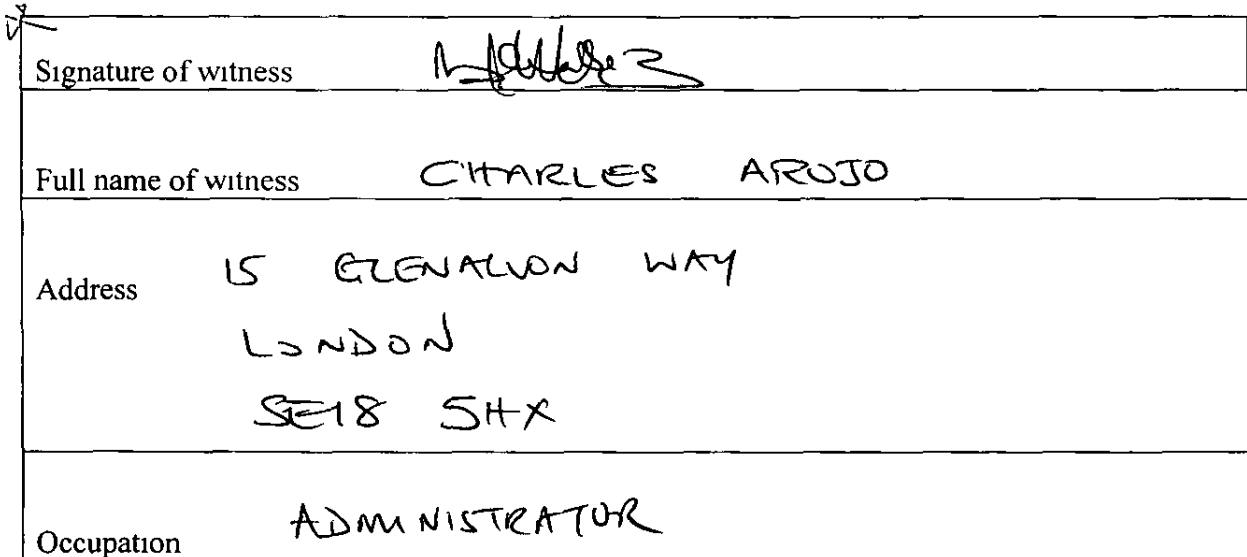 Signature of witness
Full name of witness CHARLES AROJO
Address 15 GLENALVON WAY
LONDON
SE18 5HX
Occupation ADMINISTRATOR